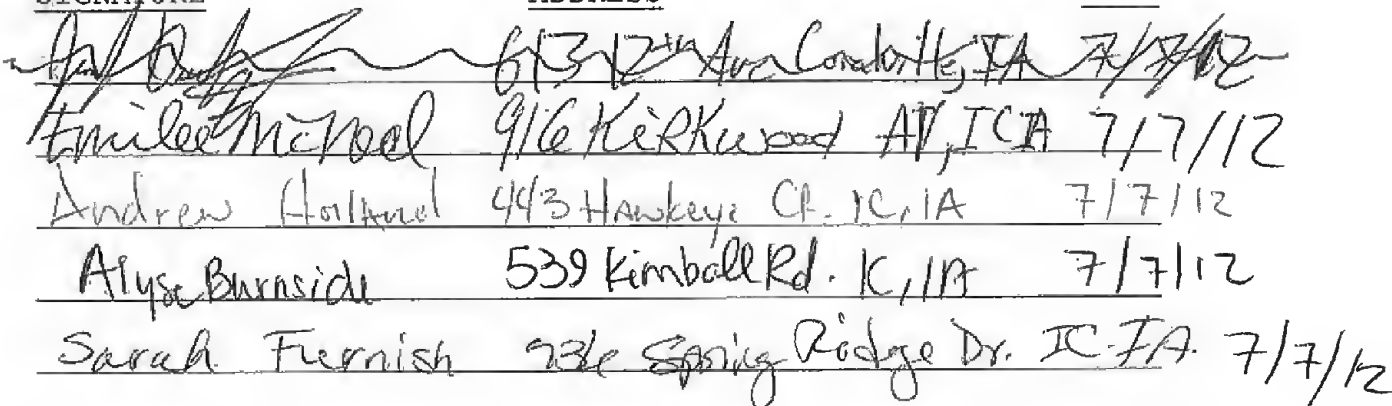 SIGNATURE ADDRESS
613 12th Ave Coralville, IA 7/7/12
Emilee McNeel 916 Kirkwood AV, ICIA 7/7/12
Andrew Holland 443 Hawkeye Ct. IC, IA 7/7/12
Alyse Burnside 539 Kimball Rd. IC, IA 7/7/12
Sarah Furnish Spring Ridge Dr. IC IA. 7/7/12